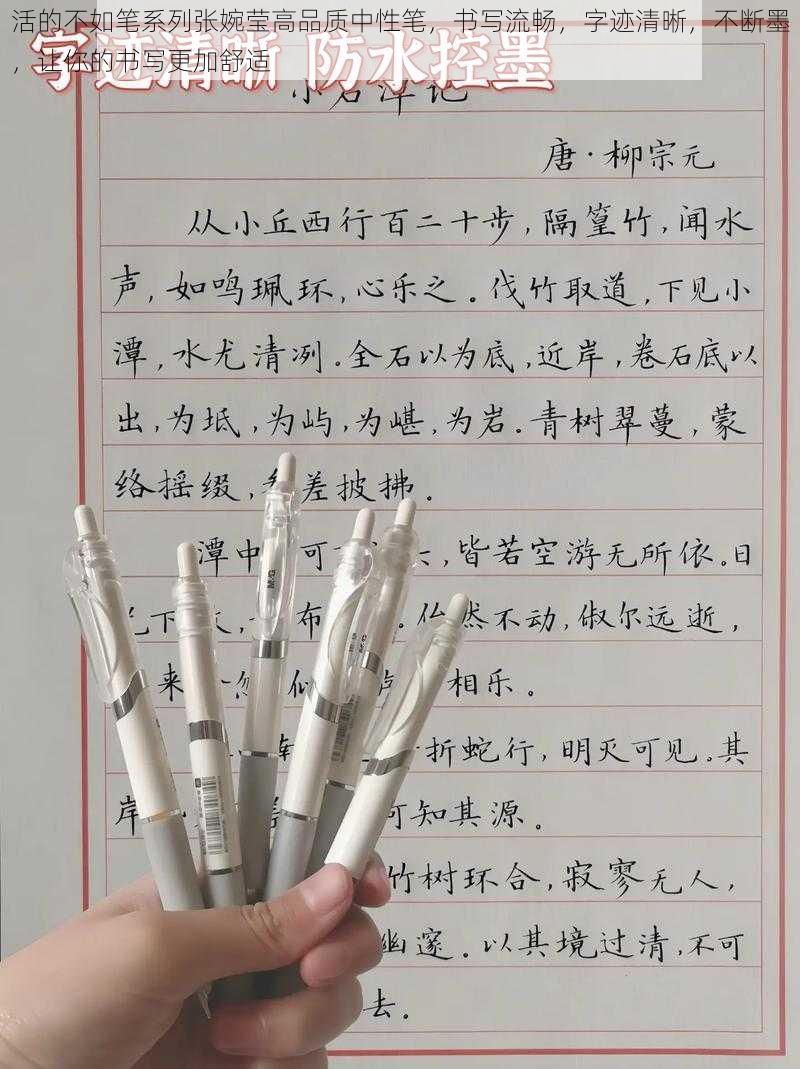 活的不如笔系列张婉莹高品质中性笔，书写流畅，字迹清晰，不断墨
，让你的书写更加舒适
字迹清晰 防水控墨
小石潭记
唐·柳宗元
从小丘西行百二十步，隔篁竹，闻水
声，如鸣珮环，心乐之。伐竹取道，下见小
潭，水尤清冽。全石以为底，近岸，卷石底以
出，为坻，为屿，为嵁，为岩。青树翠蔓，蒙
络摇缀，参差披拂。
潭中 可 ，皆若空游无所依。日
下 ，布 。佁然不动，俶尔远逝，
来 忽 似 相乐。
折蛇行，明灭可见。其
岸 可知其源。
竹树环合，寂寥无人，
幽邃。以其境过清，不可
去。
M&G